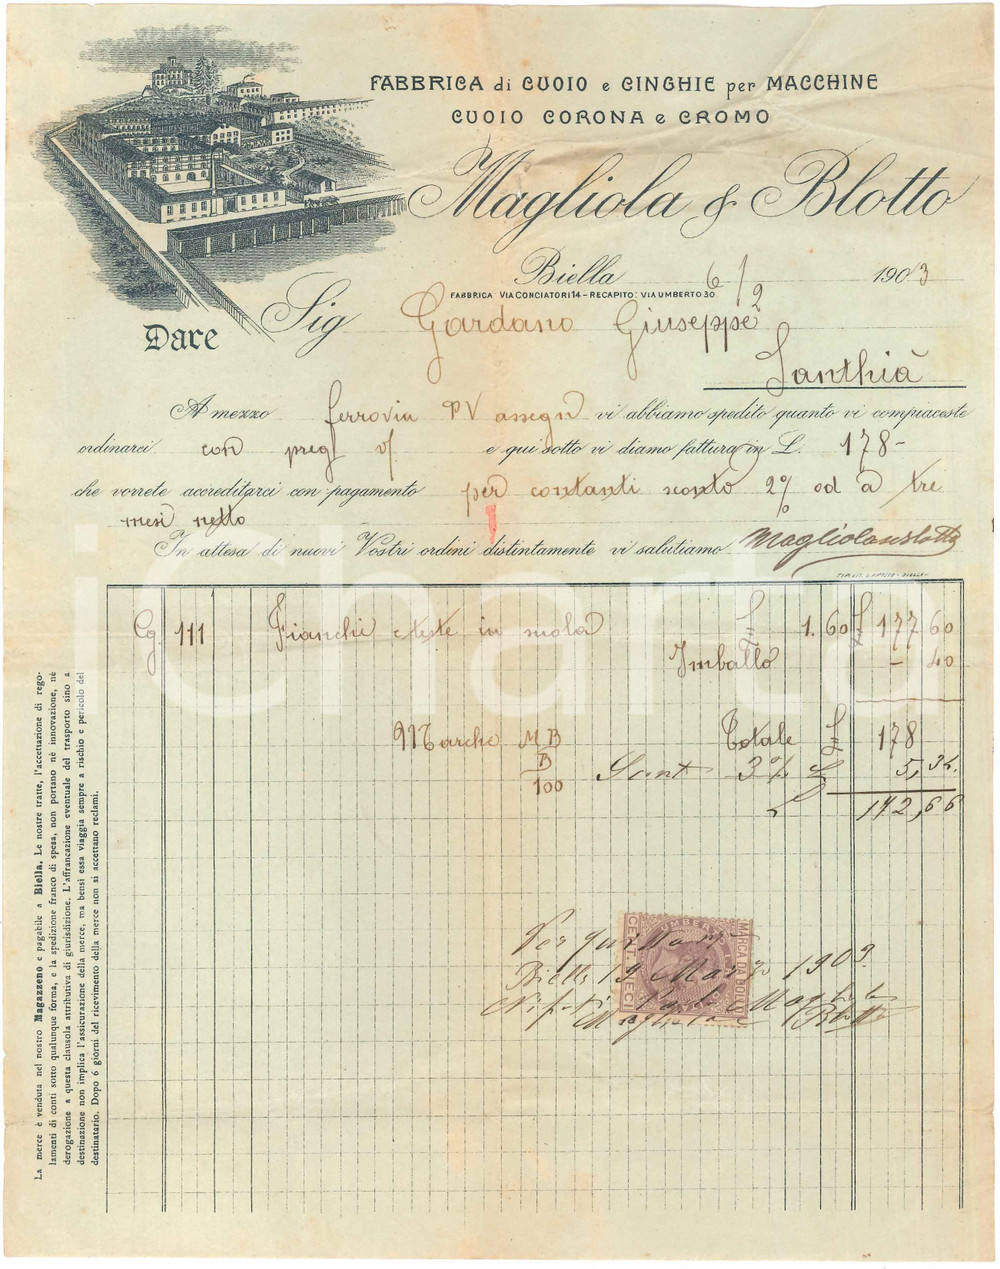 FABBRICA di CUOIO e CINGHIE per MACCHINE
CUOIO CORONA e CROMO
Magliola & Blotto
Biella 6/2 1903
FABBRICA VIA CONCIATORI 14 - RECAPITO: VIA UMBERTO 30
Dare
Sig Gardano Giuseppe
Santhià
A mezzo ferrovia PV assegn vi abbiamo spedito quanto vi compiaceste
ordinarci con preg v/ e qui sotto vi diamo fattura in L. 178-
che vorrete accreditarci con pagamento per contanti sconto 2% od a tre
mesi netto
In attesa di nuovi Vostri ordini distintamente vi salutiamo MagliolaeBlotto
Cg 111 Fianchi e teste in mola L 1.60 L 177 60
Imballo - 40
Marche M B Totale L 178
B
100
Scont 3% L 5,34
L 172,66
MARCA DA BOLLO
UMBERTO
CENT. DIECI
Per quittanza
Biella 19 Marzo 1903.
Magliola
Magliola & Blotto
La merce è venduta nel nostro Magazzeno e pagabile a Biella. Le nostre tratte, l'accettazione di rego-
lamenti di conti sotto qualunque forma, e la spedizione franco di spesa, non portano nè innovazione, nè
derogazione a questa clausola attributiva di giurisdizione. L'affrancazione eventuale del trasporto sino a
destinazione non implica l'assicurazione della merce, ma bensì essa viaggia sempre a rischio e pericolo del
destinatario. Dopo 6 giorni del ricevimento della merce non si accettano reclami.
iCharta